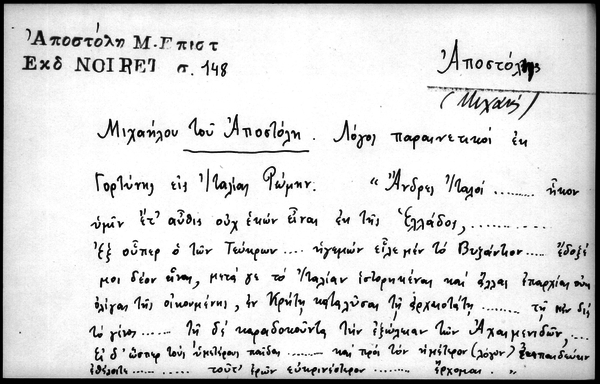 Ἀποστόλη Μ. Επιστ
Εκδ NOIRET σ. 148
Ἀποστόλης
(Μιχαήλ)
Μιχαήλου τοῦ Ἀποστόλη. Λόγος παραινετικοί ἐκ
Γορτύνης εἰς Ἰταλίας Ῥώμην. "Ἄνδρες Ἰταλοί ......... ἧκον
ὑμῖν ἔτ' αὖθις οὐχ ἑκών εἶναι ἐκ τῆς Ἑλλάδος, .........
Ἐξ οὗπερ ὁ τῶν Τεύκρων .... ἡγεμών εἷλε μέν το Βυζάντιον ..... ἔδοξέ
μοι δέον εἶναι, μετά γε τό Ἰταλίαν ἱστορηκέναι καί ἄλλας ἐπαρχίας οὐκ
ὀλίγας τῆς οἰκουμένης, ἐν Κρήτῃ καταλῦσαι τῇ ἀρχαιοτάτῃ ...... τῇ μέν διά
το γένος ...... τῇ δέ καραδοκοῦντα τήν ἐξώλειαν τῶν Ἀχαιμενιδῶν, ....
Εἰ δ' ὥσπερ τούς ὑμετέρους παῖδας ...... καί πρός τόν ἡμέτερον (λόγον)
ἐθέλοιτε ...... τοῦτ' ἐρῶν εὐκρινέστερον ...... ἔρχομαι. "